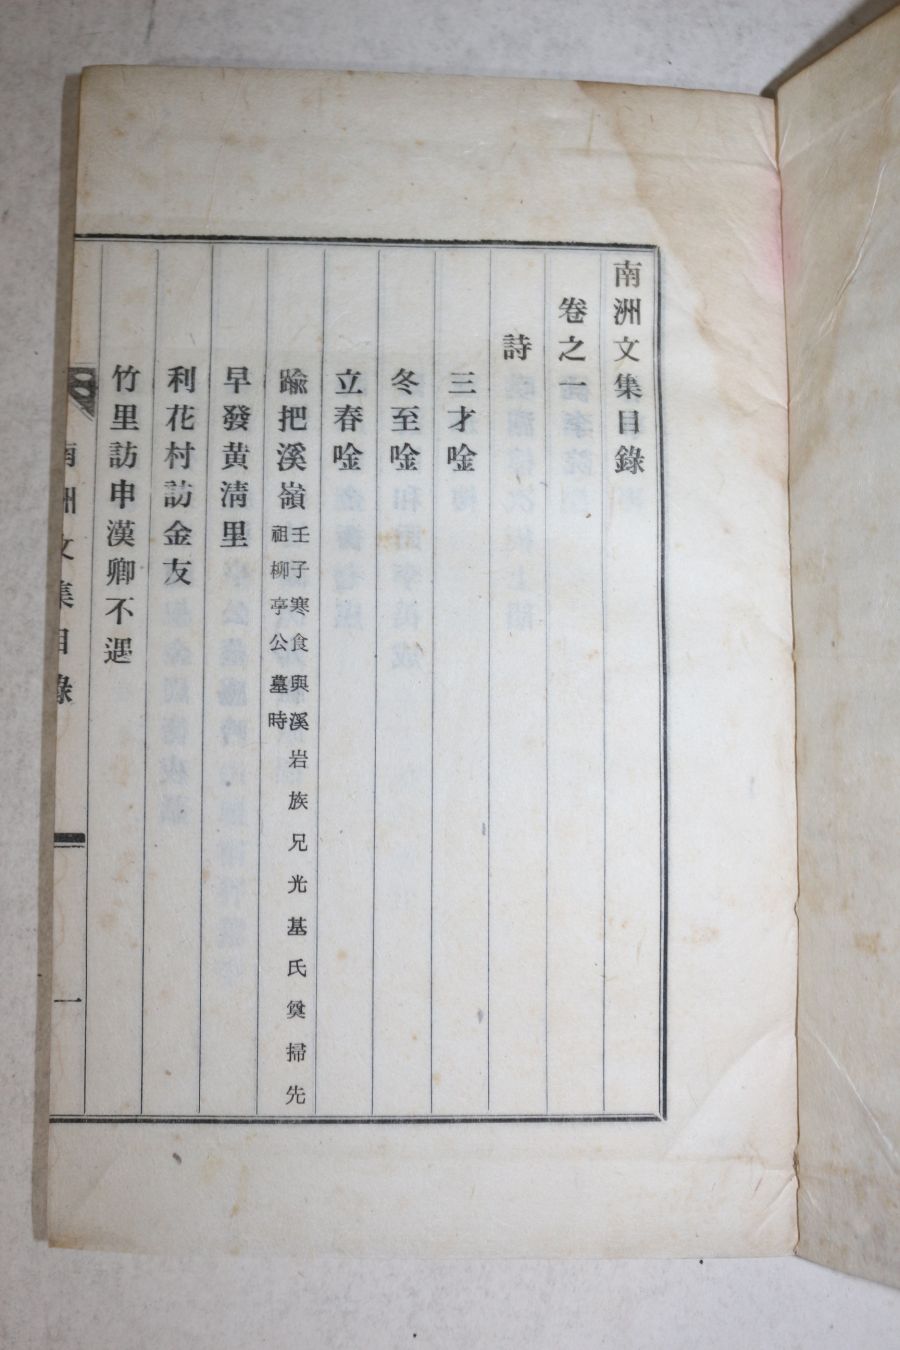 南洲文集目錄
卷之一
詩
三才唫
冬至唫
立春唫
踰把溪嶺壬子寒食與溪岩族兄光基氏奠掃先祖柳亭公墓時
早發黃淸里
利花村訪金友
竹里訪申漢卿不遇
南洲文集目錄 一